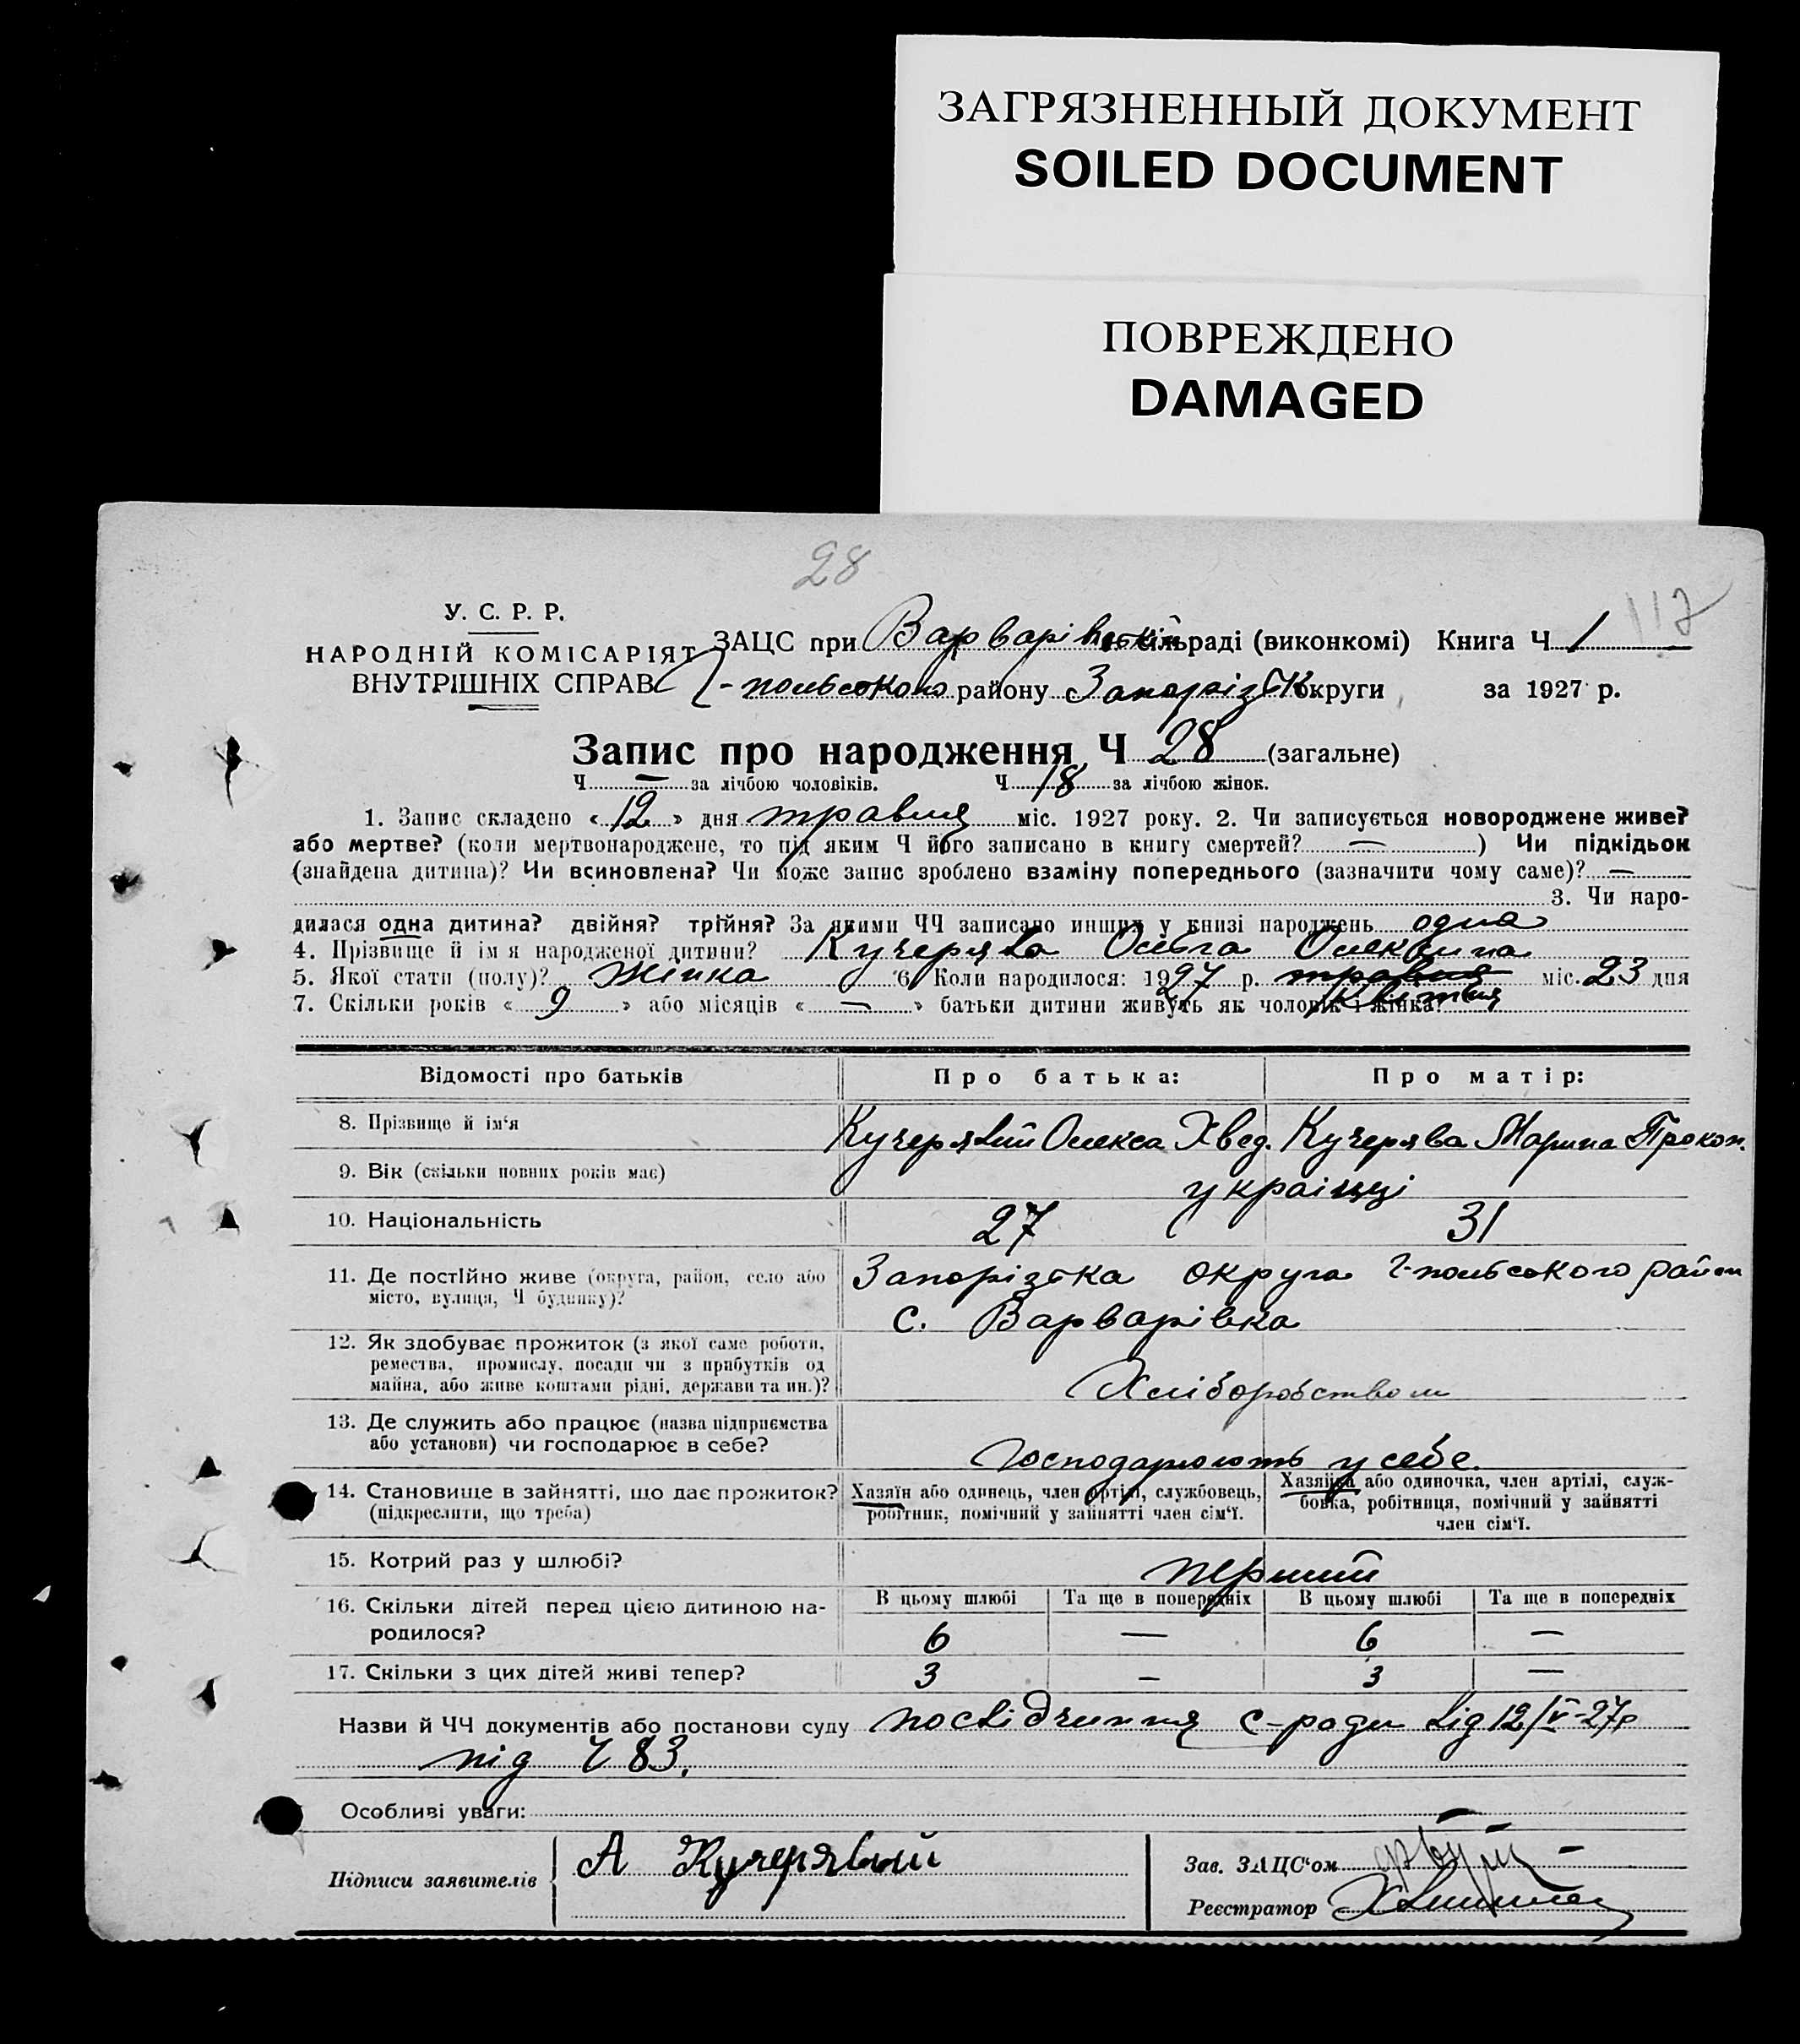 ЗАГРЯЗНЕННЫЙ ДОКУМЕНТ
SOILED DOCUMENT
ПОВРЕЖДЕНО
DAMAGED
28
117
У. С. Р. Р.
НАРОДНІЙ КОМІСАРІЯТ
ВНУТРІШНІХ СПРАВ
ЗАЦС при Варварівській сільраді (виконкомі) Книга Ч 1
Г-польського району Запорізьк округи за 1927 р.
Запис про народження Ч 28 (загальне)
Ч — за лічбою чоловіків. Ч 18 за лічбою жінок.
1. Запис складено « 12 » дня травня міс. 1927 року. 2. Чи записується новороджене живе?
або мертве? (коли мертвонароджене, то під яким Ч його записано в книгу смертей? — ) Чи підкідьок
(знайдена дитина)? Чи всиновлена? Чи може запис зроблено взаміну попереднього (зазначити чому саме)? —
3. Чи наро-
дилася одна дитина? двійня? трійня? За якими ЧЧ записано инших у книзі народжень одна
4. Прізвище й ім я народженої дитини? Кучерява Ольга Олексіина
5. Якої стати (полу)? Жінка 6. Коли народилося: 1927 р. травня міс. 23 дня
квітня
7. Скільки років « 9 » або місяців « — » батьки дитини живуть як чоловік і жінка?
Відомості про батьків Про батька: Про матір:
8. Прізвище й ім'я Кучерявий Олекса Хвед. Кучерява Марина Прокоп.
9. Вік (скільки повних років має) українці
10. Національність 27 31
11. Де постійно живе (округа, район, село або
місто, вулиця, Ч будинку)?
Запорізька округа Г-польського район
с. Варварівка
12. Як здобуває прожиток (з якої саме роботи,
ремества, промислу, посади чи з прибутків од
майна, або живе коштами рідні, держави та ин.)?
Хліборобством
13. Де служить або працює (назва підприємства
або установи) чи господарює в себе?
Господарюють у себе.
14. Становище в зайнятті, що дає прожиток?
(підкреслити, що треба)
Хазяїн або одинець, член артілі, службовець,
робітник, помічний у зайнятті член сім'ї.
Хазяйка або одиночка, член артілі, служ-
бовка, робітниця, помічний у зайнятті
член сім'ї.
15. Котрий раз у шлюбі? перший
16. Скільки дітей перед цією дитиною на-
родилося?
В цьому шлюбі Та ще в попередніх В цьому шлюбі Та ще в попередніх
6 — 6 —
17. Скільки з цих дітей живі тепер? 3 — 3 —
Назви й ЧЧ документів або постанови суду посвідчення с-ради від 12/V-27р
під Ч 83.
Особливі уваги: —
Підписи заявителів А Кучерявый
Зав. ЗАЦС'ом
Реєстратор